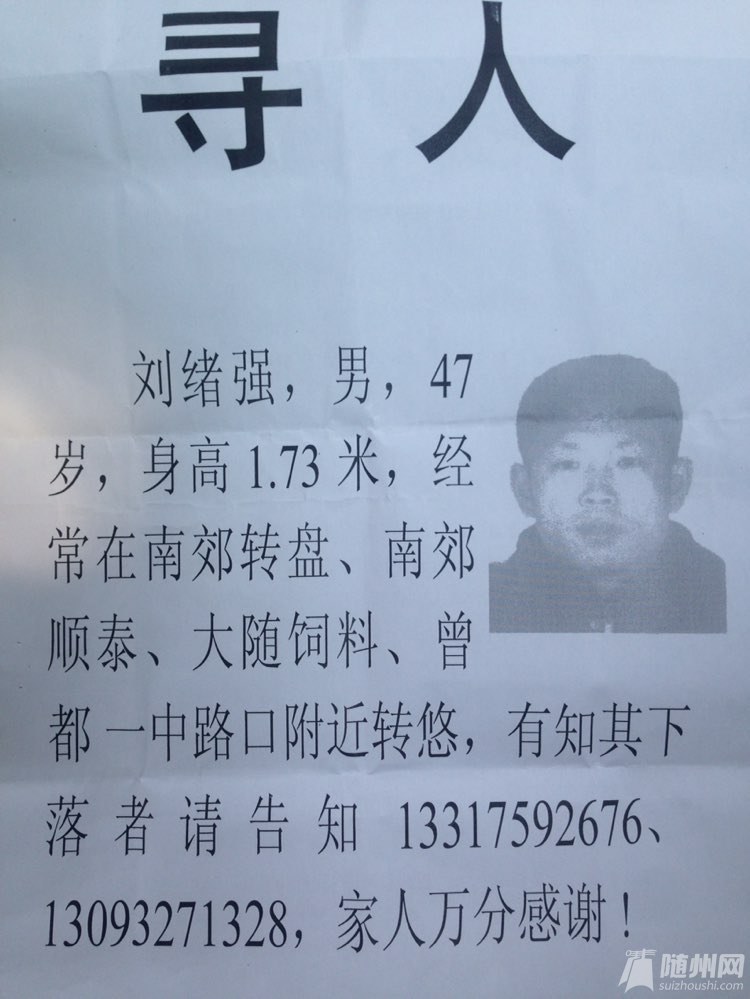 寻人
刘绪强，男，47
岁，身高1.73米，经
常在南郊转盘、南郊
顺泰、大随饲料、曾
都一中路口附近转悠，有知其下
落者请告知13317592676、
13093271328，家人万分感谢！
随州网
suizhoushi.com